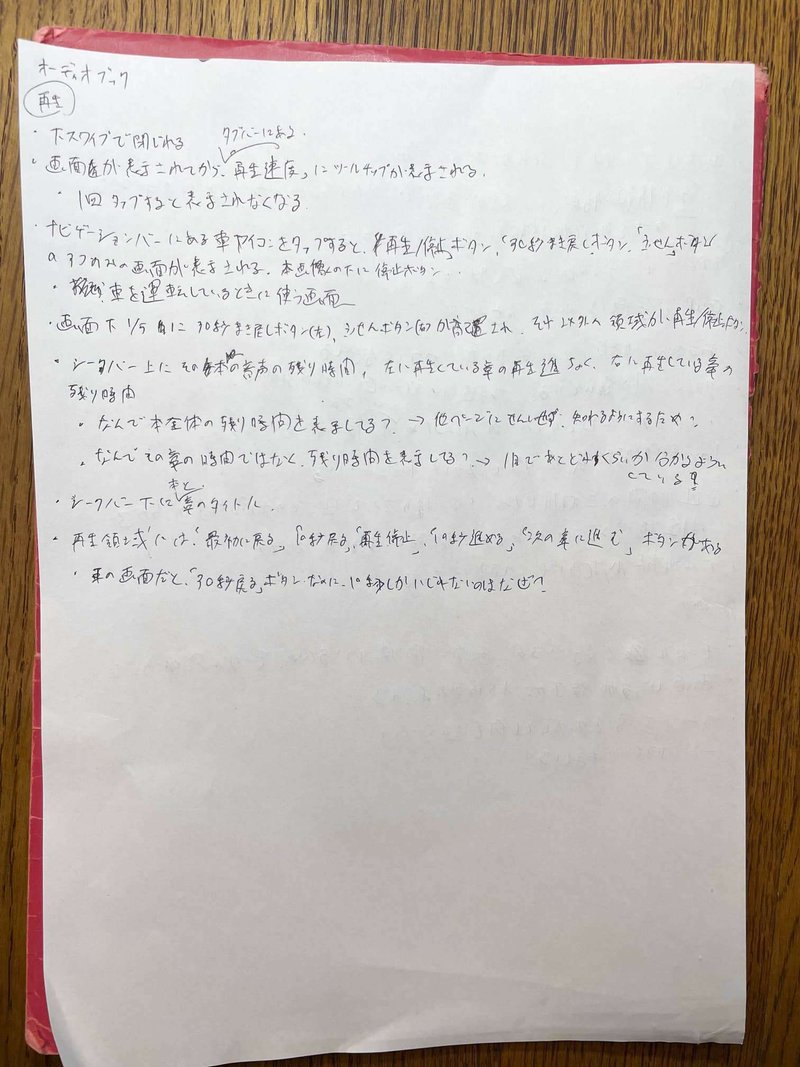 オーディオブック
再生
・下スワイプで閉じれる
タブバーにある.
・画面が表示されてから、「再生速度」にツールチップが表示される.
・1回タップすると表示されなくなる.
・ナビゲーションバーにある車アイコンをタップすると、「再生/停止」ボタン,「30秒まき戻し」ボタン,「主せん」ボタン
の3つのみの画面が表示される. 本画像の下に停止ボタン.
・車を運転しているときに使う画面
・画面下1/5に30秒まき戻しボタン(左), 主せんボタン(右)が配置され, それ以外の領域が再生/停止ボタン.
・シークバー上にその本の音声の残り時間, 左に再生している章の再生進ちょく, 右に再生している章の
残り時間
・なんで本全体の残り時間を表示してる? → 他ページにせんいせず, 知れるようにするため?
・なんでその章の時間ではなく, 残り時間を表示してる? → 1目であとどれくらいか分かるように
している?
・シークバー下に本と章のタイトル.
・再生領域には「最初に戻る」「10秒戻る」「再生停止」,「10秒進める」,「次の章に進む」ボタンがある
・車の画面だと,「30秒戻る」ボタンなのに, 10秒しかいじれないのはなぜ?